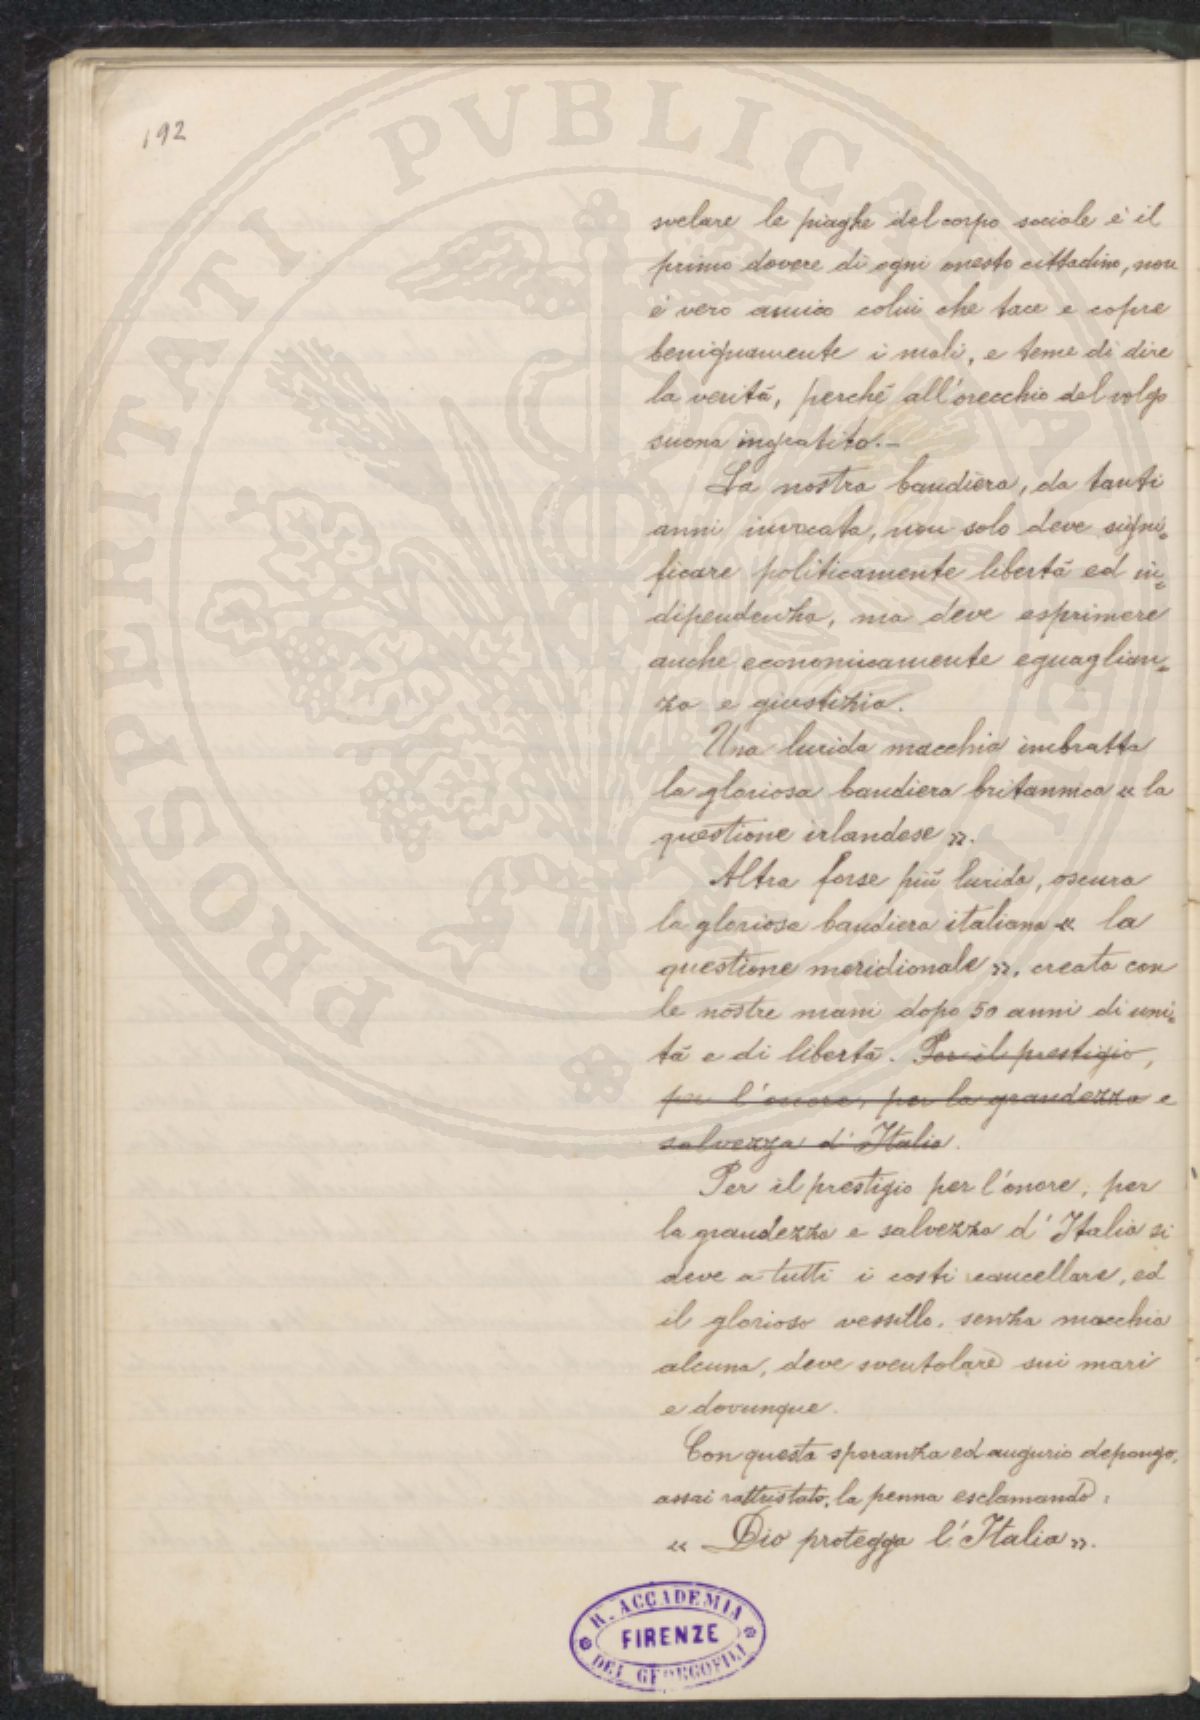 192
svelare le piaghe del corpo sociale è il
primo dovere di ogni onesto cittadino, non
è vero amico colui che tace e copre
benignamente i mali, e teme di dire
la verità, perchè all'orecchio del volgo
suona ingratito.-
La nostra bandiera, da tanti
anni invocata, non solo deve signi=
ficare politicamente libertà ed in=
dipendenza, ma deve esprimere
anche economicamente eguaglian=
za e giustizia.
Una lurida macchia imbratta
la gloriosa bandiera britannica « la
questione irlandese ».
Altra forse più lurida, oscura
la gloriosa bandiera italiana « la
questione meridionale », creata con
le nostre mani dopo 50 anni di uni=
tà e di libertà. Per il prestigio,
per l'onore, per la grandezza e
salvezza d'Italia.
Per il prestigio per l'onore, per
la grandezza e salvezza d'Italia si
deve a tutti i costi cancellare, ed
il glorioso vessillo, senza macchia
alcuna, deve sventolare sui mari
e dovunque.
Con questa speranza ed augurio depongo,
assai rattristato, la penna esclamando:
« Dio protegga l'Italia ».
R. ACCADEMIA
FIRENZE
DEI GEORGOFILI
PROSPERITATI PVBLICAE